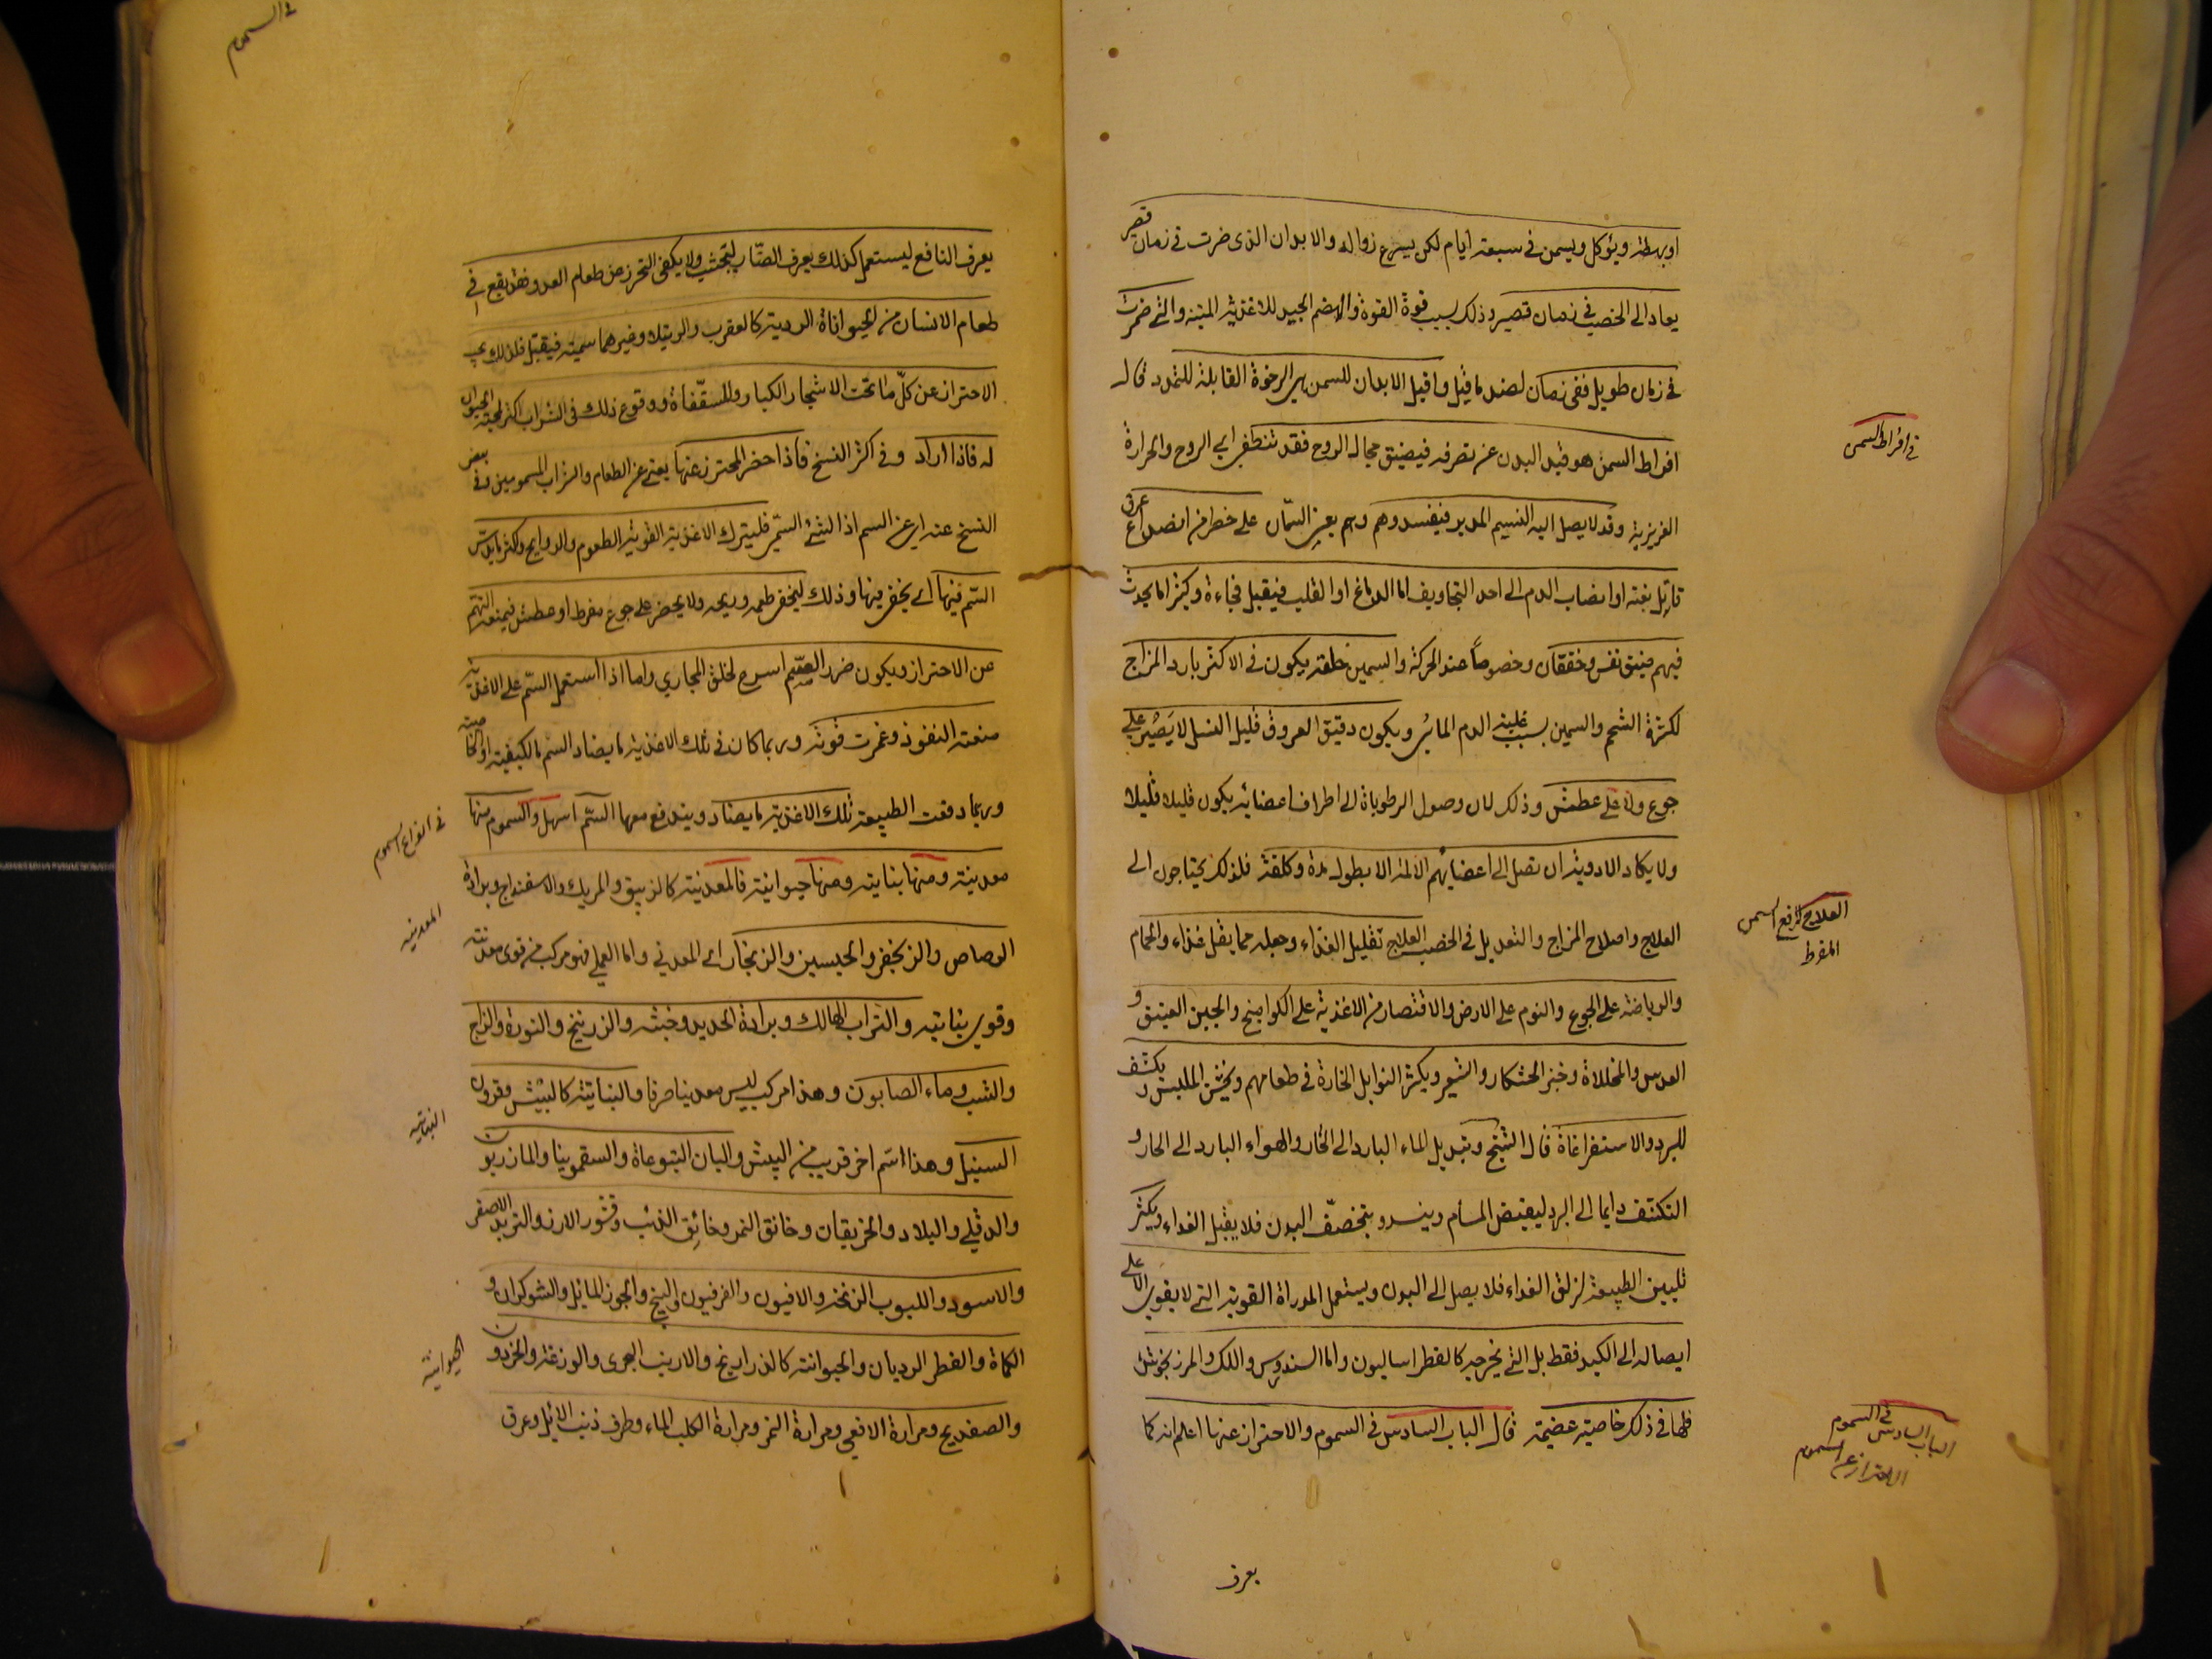 او بربطة ويؤكل ويسمن في سبعة ايام لكن يسرع زواله والابدان الذى ضرت في زمان قصير
يعاد الى الخصب في زمان قصير وذلك لسبب قوة القوة والهضم الجيد للاغذية المتينة والتي ضمرت
في زمان طويل ففي زمان لضد ما قيل واقبل الابدان للسمن هي الرخوة القابلة للتمدد قال
في افراط السمن
افراط السمن هو قيد البدن عن تصرفه فيضيق مجال الروح فقد تنطفي اي الروح والحرارة
الغريزية وقد لا يصل اليه النسيم المدبر فيفسد وهم وهم يعني السمان على خطر من انصداع عرق
قاتل بغتة او انصباب الدم الى احد التجاويف اما الدماغ او القلب فيقبل فجاءة وكثيرا ما يحدث
فيهم ضيق نفس وخفقان وخصوصاً عند الحركة والسمين خلقة يكون في الاكثر بارد المزاج
لكثرة الشحم والسمين بسبب غلبة الدم المائى ويكون دقيق العروق قليل النسل لا يَصْبُر على
جوع ولا على عطش وذلك لان وصول الرطوباة الى اطراف اعضائه يكون قليلا قليلا
ولا يكاد الادوية ان تصل الى اعضايهم الالمة الا بطول مدة وكلفة فلذلك يحتاجون الى
العلاج لرفع السمن
المفرط
العلاج واصلاح المزاج والتعديل في الخصب العلاج تقليل الغذاء وجعله مما يقل غذاء والحمام
والرياضة على الجوع والنوم على الارض والاقتصار من الاغذية على الكواميخ والجبن العتيق و
العدس والمخللاة وخبز الخشكار والشعير ويكثر التوابل الحارة في طعامهم ويخشن الملبس و يكشف
للبرد والاستفراغاة قال الشيخ وتبديل الماء البارد الى الحار والهواء البارد الى الحار و
التكشف دايما الى البرد ليقبض المسام وينسد و يتخصّف البدن فلا يقبل الغداء ويكثر
تليين الطبيعة لزلق الغداء فلا يصل الى البدن ويستعمل المدراة القوية التي لا يقوي الا على
ايصاله الى الكبد فقط بل التي يخرجه كالفطراساليون واما السندروس واللك والمرزنجوش
فلها في ذلك خاصية عضيمة قال الباب السادس في السموم والاحتراز عنها اعلم انه كما
الباب السادس في السموم
الاحتراز عن السموم
يعرف
في السموم
يعرف النافع ليستعمل كذلك يعرف الضّار ليجتنب ولا يكفى التحرز من طعام العدو فقد يقع في
طعام الانسان من الحيواناة الردية كالعقرب والرتيلا وغيرهما سمية فيقتل فلذلك يجب
الاحتراز عن كلّ ما تحت الاشجار الكبار والمسقّفاة ووقوع ذلك في الشراب اكثر لمحبة الحيوان
له فاذا اراد وفي اكثر النسخ فاذا حضر المحترز عنها يعني عن الطعام والشراب المسمومين وفي بعض
النسخ عنه اي عن السم اذا الشئ السمّى فليترك الاغذية القوية الطعوم والروايح واكثر ما يدسّ
السّم فيها اى يخفى فيها وذلك ليخفى طعمه وريحه ولا يحضر على جوع مفرط او عطش فيمنعه النهم
عن الاحتراز ويكون ضرر السّم اسرع لخلو المجاري واما اذا استعمل السّم على الاغذية
منعته النفوذ وغمرت قوته وربما كان في تلك الاغذية ما يضاد السّم بالكيفية او الخاصية
في انواع السموم
وربما دفعت الطبيعة تلك الاغذية ما يضاد ويندفع معها السّم اسهل والسموم منها
معدنية ومنها نباتية ومنها حيوانية فالمعدنية كالزيبق والمرتك والاسفنداج وبرادة
المعدنية
الرصاص والزنجفر والجبسين والزنجار اي المعدني واما العملي فهو مركب من قوى معدنية
وقوي نباتية والتراب الهالك وبرادة الحديد وخبثه والزرنيخ والنورة والزاج
والشب وماء الصابون وهذا مركب ليس معدنيا صرفا والنباتية كالبيش وقرون
النباتية
السنبل وهذا اسم اخر قريب من البيش والبان اليتوعاة والسقمونيا والمازريون
والدفلي والبلادر والخربقان وخانق النمر وخانق الذئب وقشور الارز والتربد الاصفر
والاسود واللبوب الزنخة والافيون والفرفيون والبنج والجوز الماثل والشوكران و
الكماة والفطر الرديان والحيوانية كالذراريح والارنب البحرى والوزغة والحرذون
الحيوانية
والضفديع ومرارة الافعي ومرارة النمر ومرارة الكلب الماء وطرف ذنب الايل وعرق